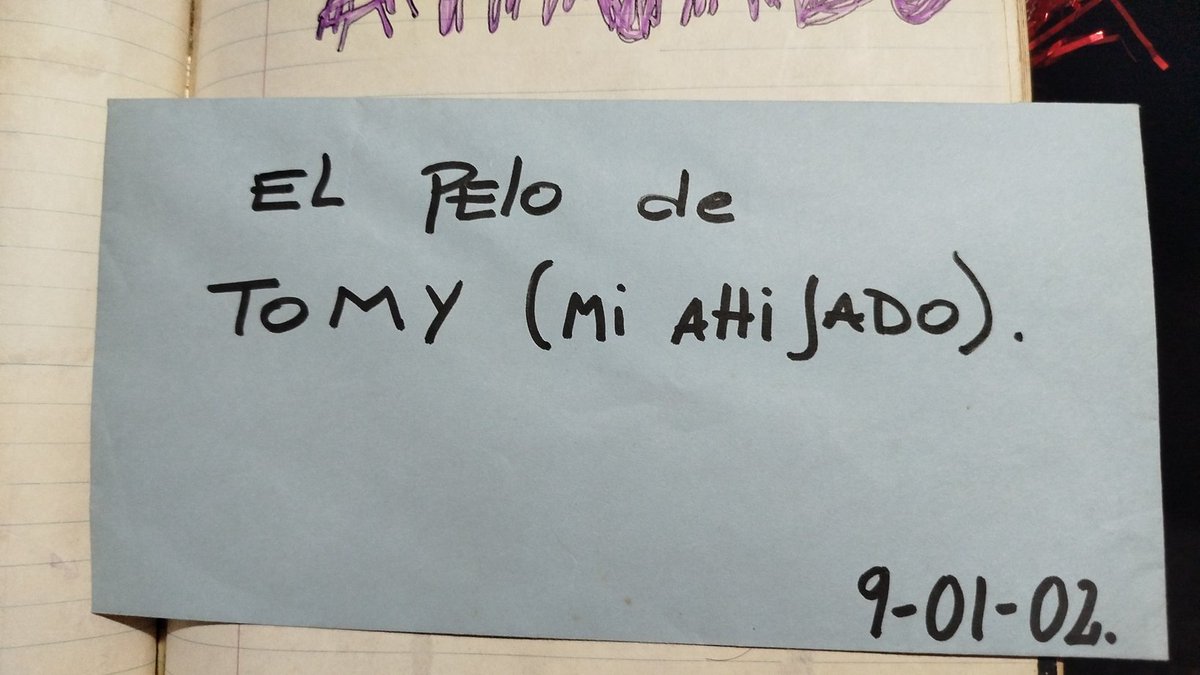 EL PElo de
TOMY (Mi AHiJADO).
9-01-02.